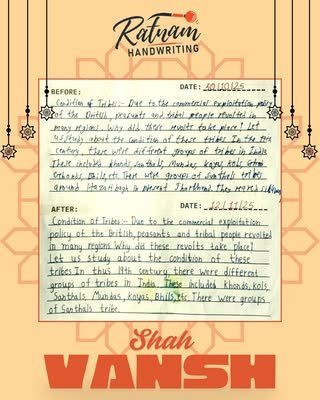 Ratnam
HANDWRITING
DATE: 30/10/25
BEFORE:
Condition of Tribes:- Due to the commercial exploitation policy
of the British, peasants and tribal people revolted in
many regions. Why did these revolts take place? Let
us study about the condition of these tribes. In the 19th
century, there were different groups of tribes in India
These included khonds, santhals, Mundas, koyas, kols,
Gohonds, Bhils, etc. There were groups of Santhals tribes
around Hazaribagh in present Jharkhand. They reared
DATE: 12/11/25
AFTER:
Condition of Tribes:- Due to the commercial exploitation
policy of the British, peasants and tribal people revolted
in many regions. Why did these revolts take place?
Let us study about the condition of these
tribes. In thus 19th century, there were different
groups of tribes in India. These included khonds, kols,
Santhals, Mundas, koyas, Bhils, etc. There were groups
of Santhals tribe.
Shah
VANSH